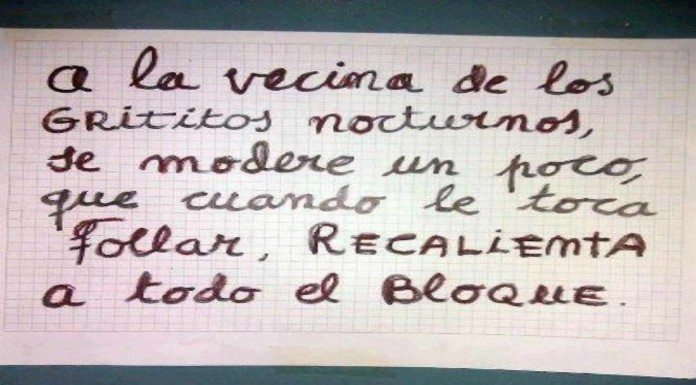 a la vecina de los
GRititos nocturnos,
se modere un poco,
que cuando le toca
follar, RECALiENTA
a todo el BLOQUE.